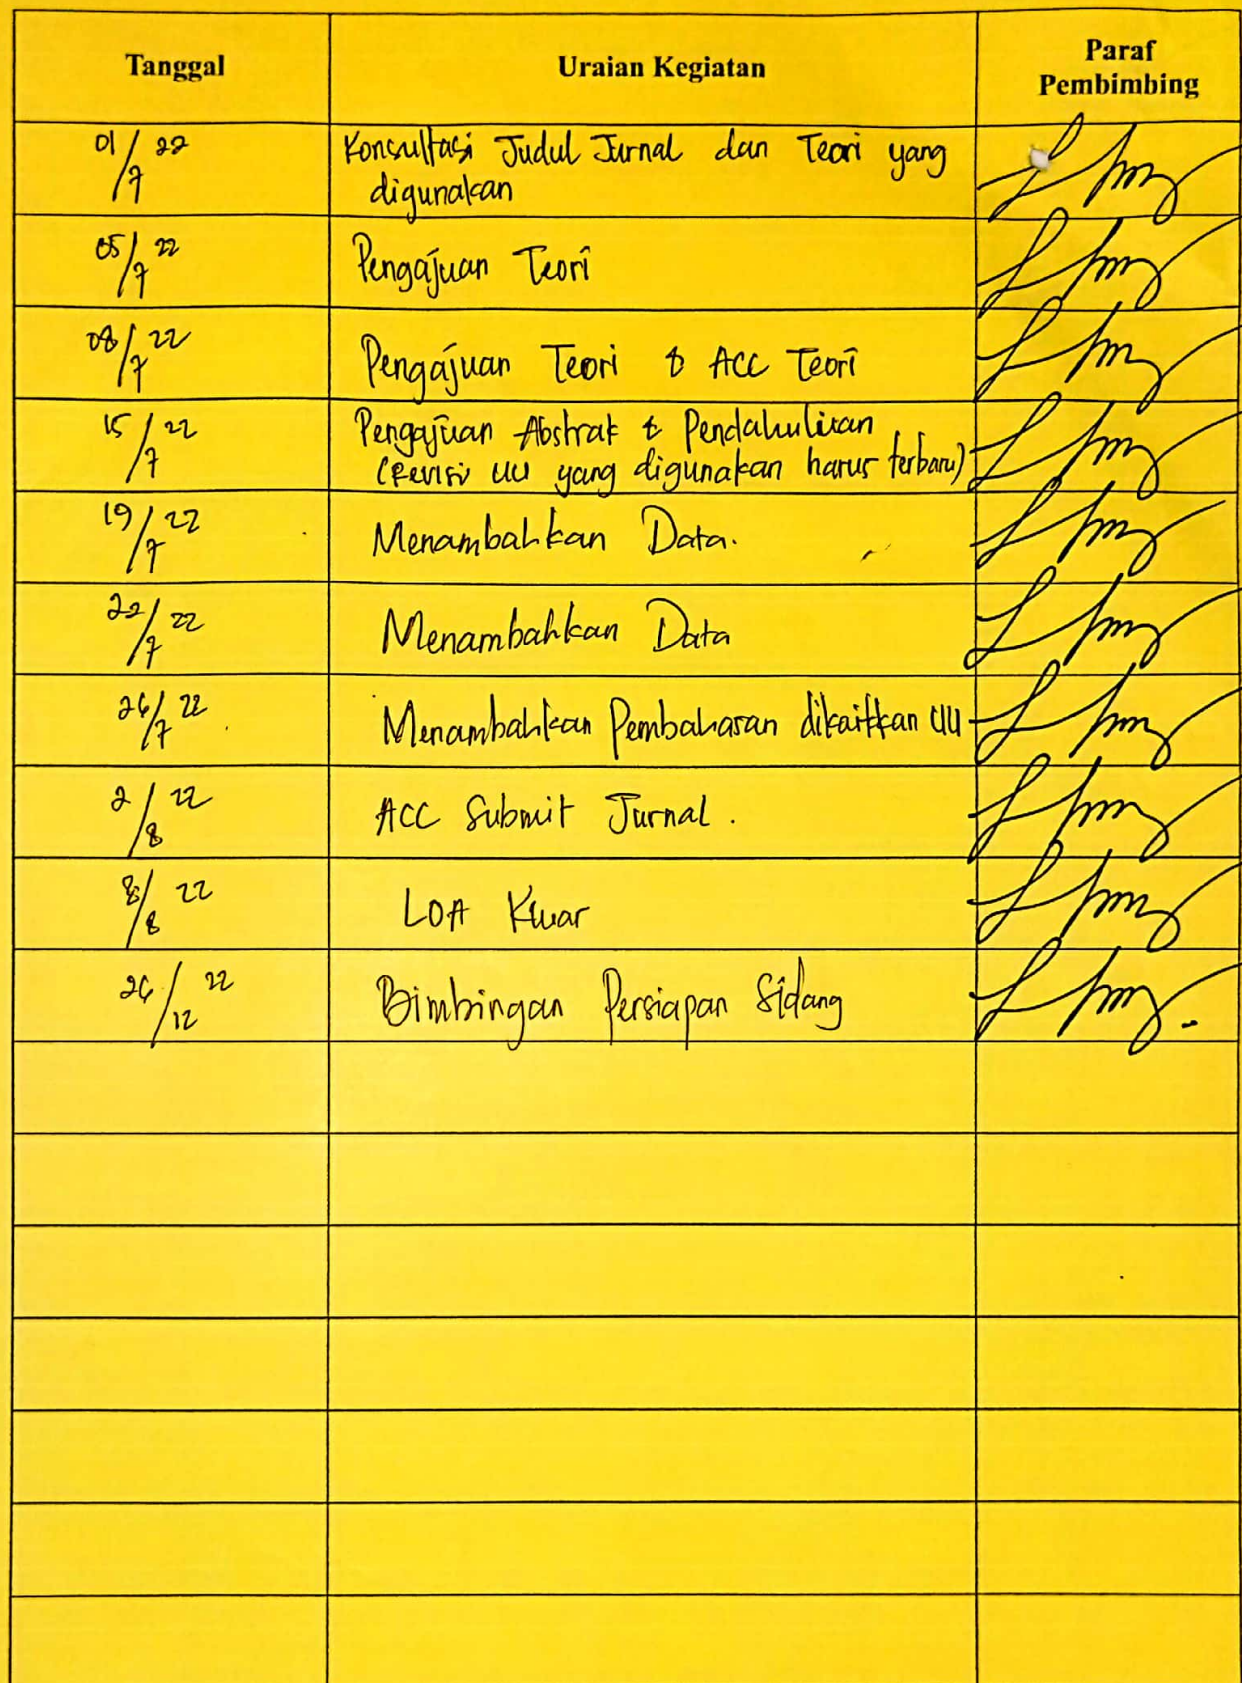 Tanggal Uraian Kegiatan Paraf Pembimbing
01/7 22 Konsultasi Judul Jurnal dan Teori yang
digunakan
05/7 22 Pengajuan Teori
08/7 22 Pengajuan Teori & ACC Teori
15/7 22 Pengajuan Abstrak & Pendahuluan
(Revisi UU yang digunakan harus terbaru)
19/7 22 Menambahkan Data.
22/7 22 Menambahkan Data
26/7 22 Menambahkan Pembahasan dikaitkan UU
2/8 22 ACC Submit Jurnal.
8/8 22 LOA Kluar
26/12 22 Bimbingan Persiapan Sidang